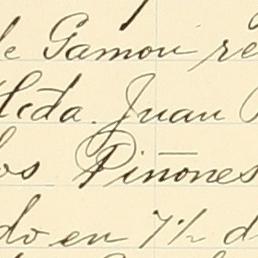 de Gamon re
Hcda. Juan
los Piñones
do en 7½ d